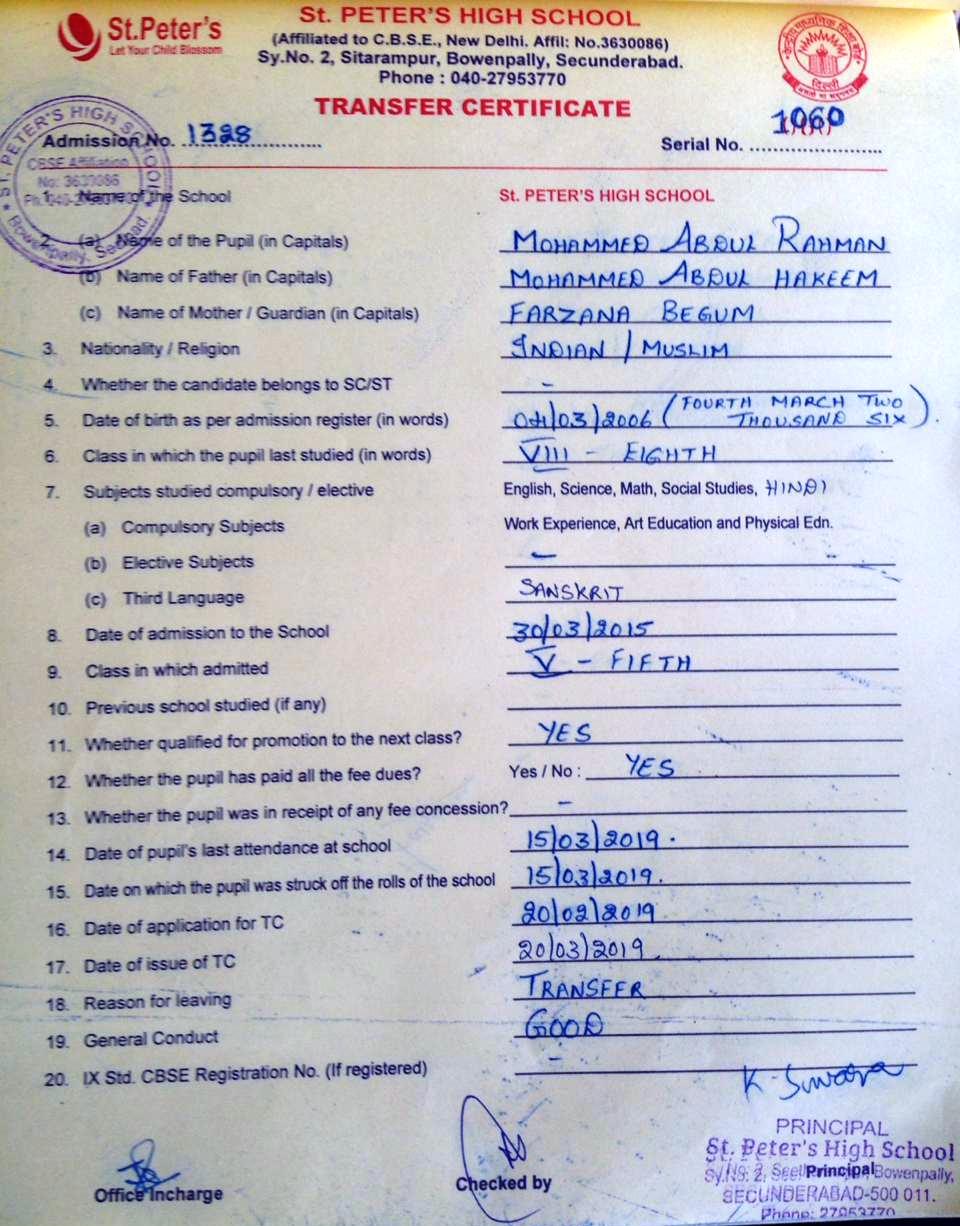 St.Peter's
Let Your Child Blossom
St. PETER'S HIGH SCHOOL
(Affiliated to C.B.S.E., New Delhi. Affil: No.3630086)
Sy.No. 2, Sitarampur, Bowenpally, Secunderabad.
Phone : 040-27953770
TRANSFER CERTIFICATE
Admission No. 1328
Serial No. 1060
ST. PETER'S HIGH SCHOOL
CBSE Affiliation
No: 3630086
Bowenpally, Sec'bad
1. Name of the School St. PETER'S HIGH SCHOOL
2. (a) Name of the Pupil (in Capitals) MOHAMMED ABDUL RAHMAN
(b) Name of Father (in Capitals) MOHAMMED ABDUL HAKEEM
(c) Name of Mother / Guardian (in Capitals) FARZANA BEGUM
3. Nationality / Religion INDIAN / MUSLIM
4. Whether the candidate belongs to SC/ST -
5. Date of birth as per admission register (in words) 04/03/2006 (FOURTH MARCH TWO THOUSAND SIX).
6. Class in which the pupil last studied (in words) VIII - EIGHTH
7. Subjects studied compulsory / elective English, Science, Math, Social Studies, HINDI
(a) Compulsory Subjects Work Experience, Art Education and Physical Edn.
(b) Elective Subjects -
(c) Third Language SANSKRIT
8. Date of admission to the School 30/03/2015
9. Class in which admitted V - FIFTH
10. Previous school studied (if any)
11. Whether qualified for promotion to the next class? YES
12. Whether the pupil has paid all the fee dues? Yes / No : YES
13. Whether the pupil was in receipt of any fee concession? -
14. Date of pupil's last attendance at school 15/03/2019.
15. Date on which the pupil was struck off the rolls of the school 15/03/2019.
16. Date of application for TC 20/02/2019
17. Date of issue of TC 20/03/2019.
18. Reason for leaving TRANSFER
19. General Conduct GOOD
20. IX Std. CBSE Registration No. (If registered) -
Office Incharge
Checked by
Principal
PRINCIPAL
St. Peter's High School
Sy.No. 2, Bowenpally,
SECUNDERABAD-500 011.
Phone: 27953770